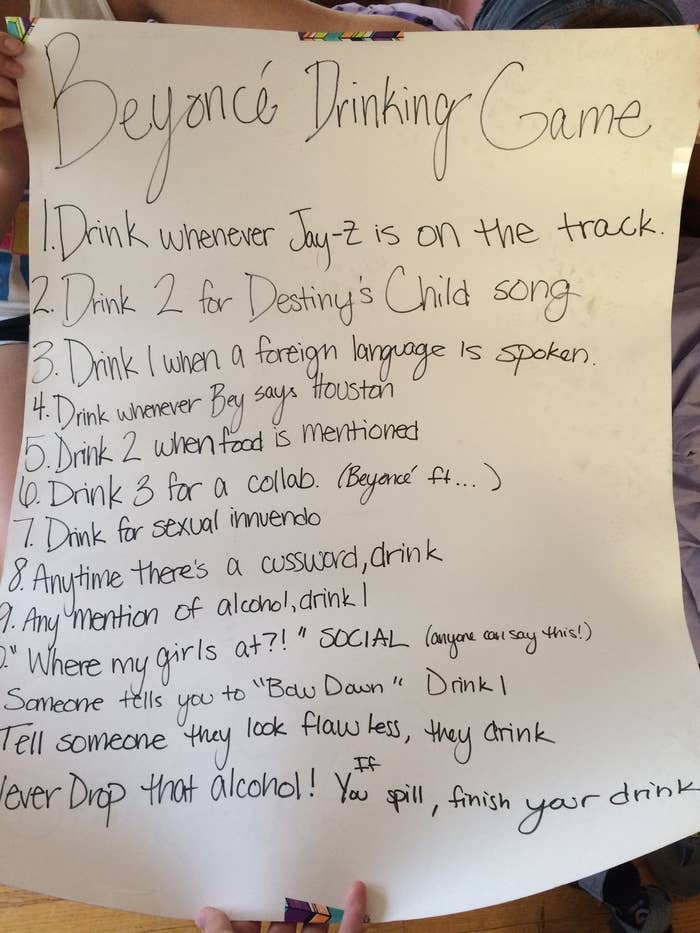 Beyoncé Drinking Game
1. Drink whenever Jay-Z is on the track.
2. Drink 2 for Destiny's Child song
3. Drink 1 when a foreign language is spoken.
4. Drink whenever Bey says Houston
5. Drink 2 when food is mentioned
6. Drink 3 for a collab. (Beyoncé ft...)
7. Drink for sexual innuendo
8. Anytime there's a cussword, drink
9. Any mention of alcohol, drink 1
0. "Where my girls at?!" SOCIAL (anyone can say this!)
Someone tells you to "Bow Down" Drink 1
Tell someone they look flawless, they drink
ever Drop that alcohol! If You spill, finish your drink